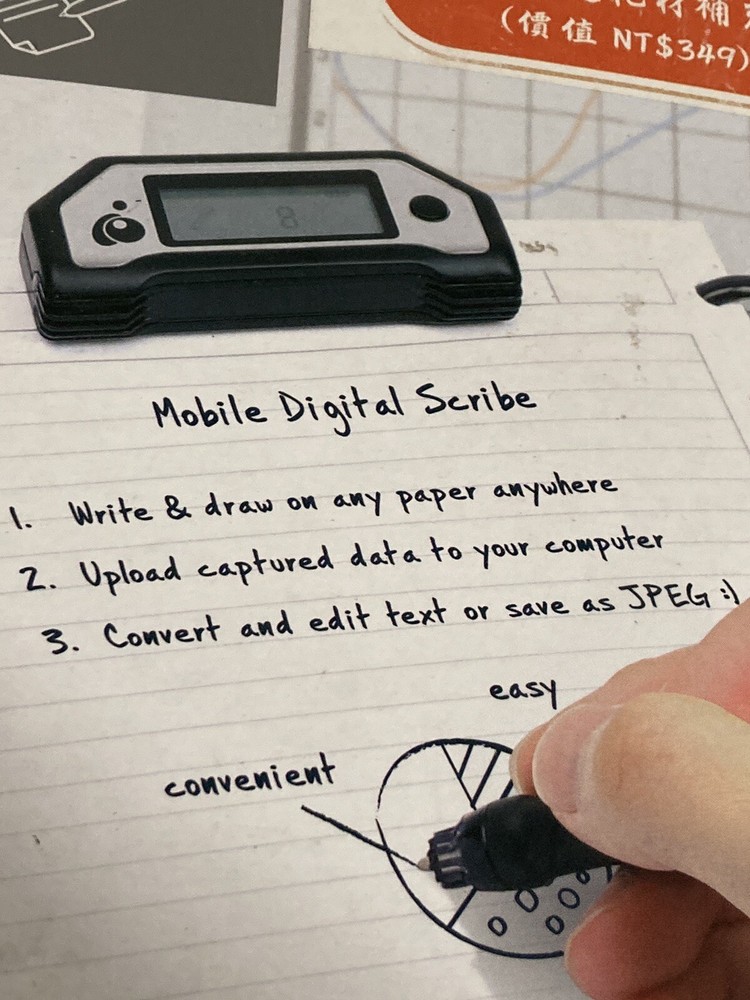 (價值 NT$349)
8
Mobile Digital Scribe
1. Write & draw on any paper anywhere
2. Upload captured data to your computer
3. Convert and edit text or save as JPEG :)
easy
convenient